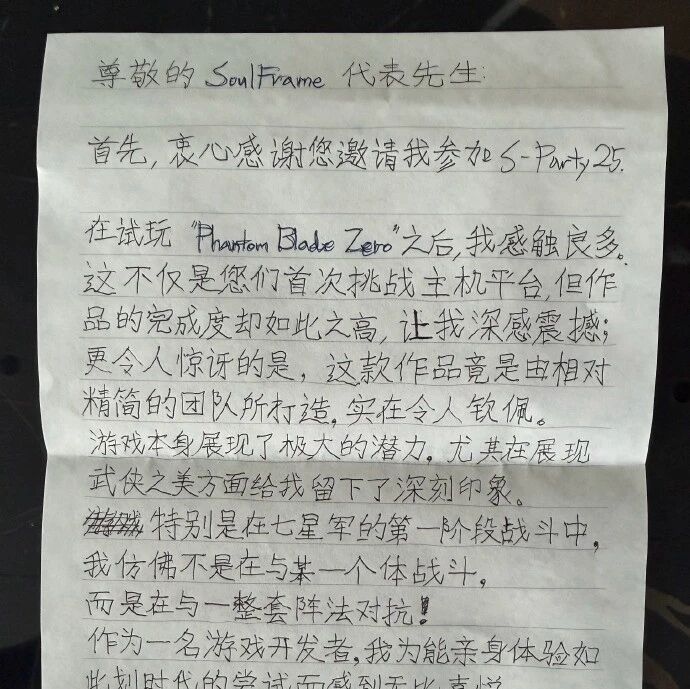 尊敬的 SoulFrame 代表先生:
首先,衷心感谢您邀请我参加 S-Party 25.
在试玩 "Phantom Blade Zero" 之后,我感触良多。
这不仅是您们首次挑战主机平台,但作
品的完成度却如此之高,让我深感震撼;
更令人惊讶的是,这款作品竟是由相对
精简的团队所打造,实在令人钦佩。
游戏本身展现了极大的潜力,尤其在展现
武侠之美方面给我留下了深刻印象。
特别是在七星军的第一阶段战斗中,
我仿佛不是在与某一个体战斗,
而是在与一整套阵法对抗!
作为一名游戏开发者,我为能亲身体验如
此划时代的尝试而感到无比喜悦